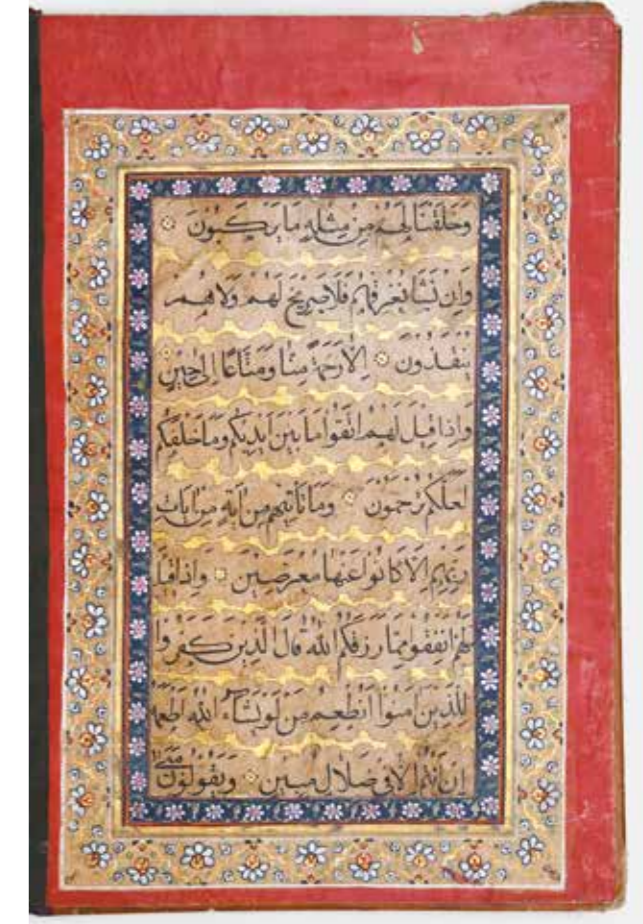 وَخَلَقْنَا لَهُمْ مِنْ مِثْلِهِ مَا يَرْكَبُونَ
وَإِنْ نَشَأْ نُغْرِقْهُمْ فَلَا صَرِيخَ لَهُمْ وَلَا هُمْ
يُنْقَذُونَ اِلَّا رَحْمَةً مِنَّا وَمَتَاعًا اِلَى حِينٍ
وَاِذَا قِيلَ لَهُمُ اتَّقُوا مَا بَيْنَ اَيْدِيكُمْ وَمَا خَلْفَكُمْ
لَعَلَّكُمْ تُرْحَمُونَ وَمَا تَأْتِيهِمْ مِنْ اٰيَةٍ مِنْ اٰيَاتِ
رَبِّهِمْ اِلَّا كَانُوا عَنْهَا مُعْرِضِينَ وَاِذَا قِيلَ
لَهُمْ اَنْفِقُوا مِمَّا رَزَقَكُمُ اللّٰهُ قَالَ الَّذِينَ كَفَرُوا
لِلَّذِينَ اٰمَنُوا اَنُطْعِمُ مَنْ لَوْ يَشَاءُ اللّٰهُ اَطْعَمَهُ
اِنْ اَنْتُمْ اِلَّا فِي ضَلَالٍ مُبِينٍ وَيَقُولُونَ مَتَى